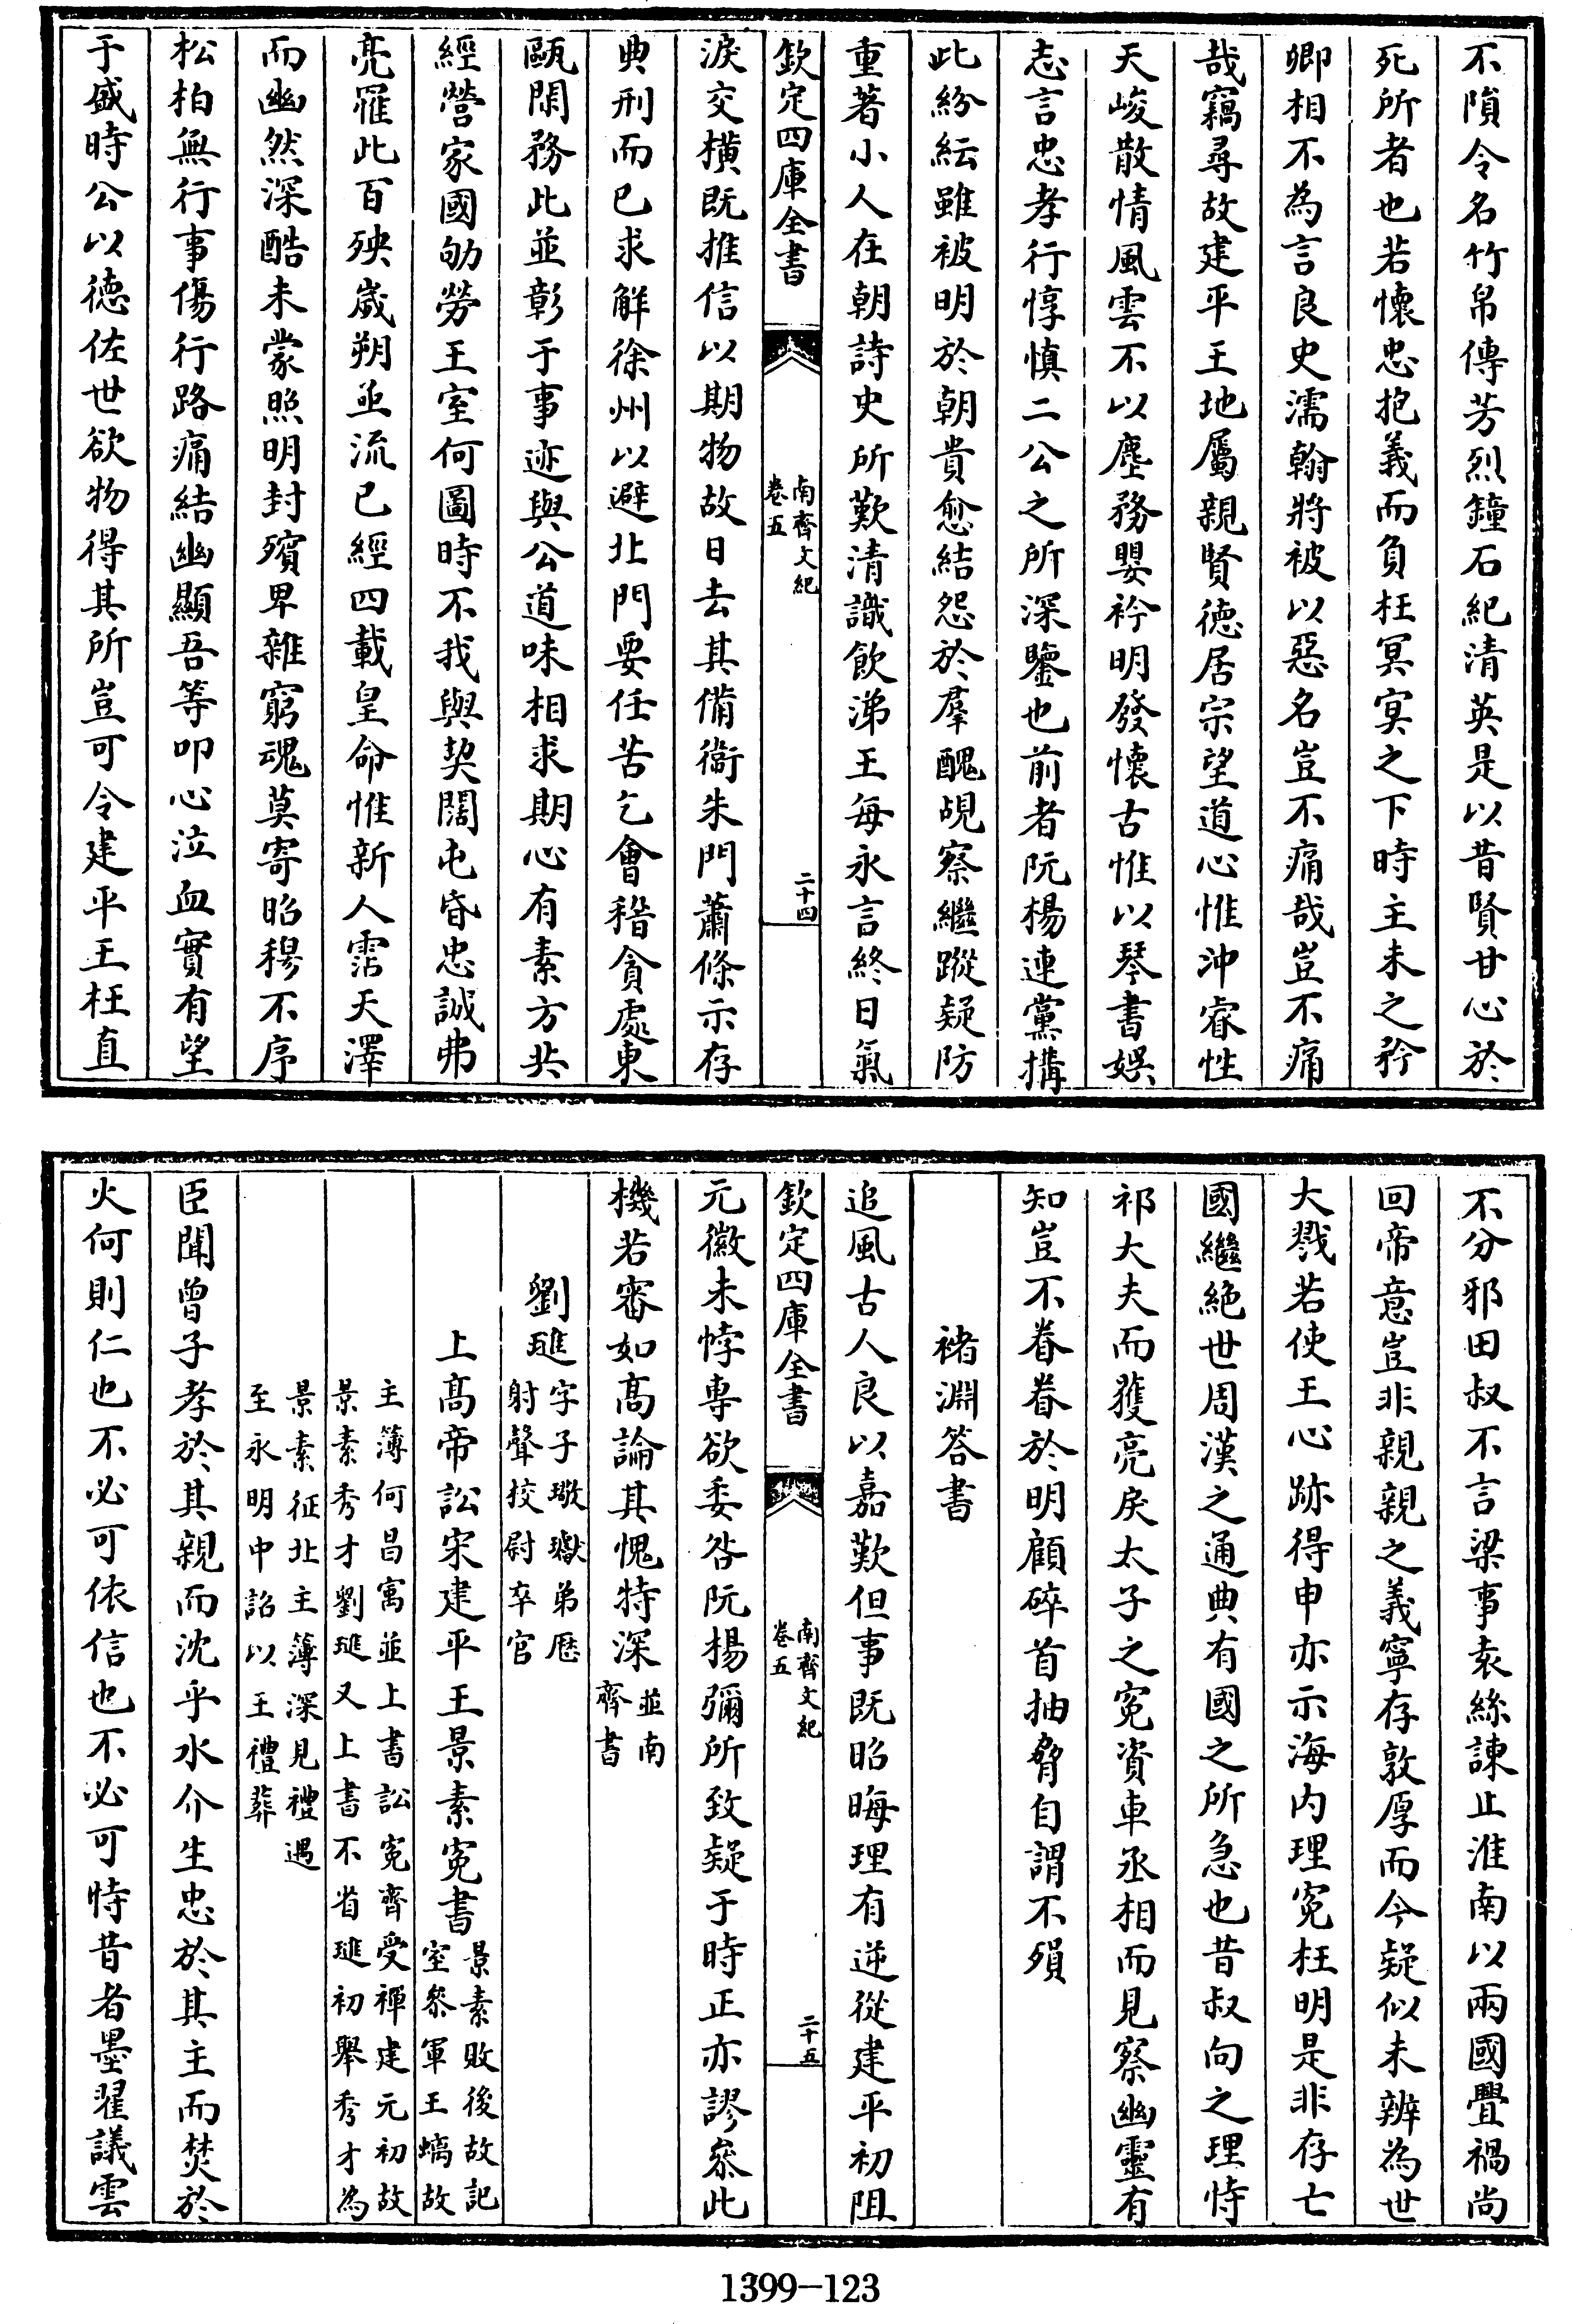 不隕令名竹帛傳芳烈鐘石紀清英是以昔賢甘心於
死所者也若懷忠抱義而負枉冥冥之下時主未之矜
卿相不為言良史濡翰將被以惡名豈不痛哉豈不痛
哉竊尋故建平王地屬親賢德居宗望道心惟沖睿性
天峻散情風雲不以塵務嬰衿明發懷古惟以琴書娯
志言忠孝行惇慎二公之所深鑒也前者阮楊連黨搆
此紛紜雖被明於朝貴愈結怨於羣醜覘察繼蹤疑防
重著小人在朝詩史所歎清識飲涕王每永言終日氣
欽定四庫全書
南齊文紀
卷五
二十四
淚交横既推信以期物故日去其備衛朱門蕭條示存
典刑而已求解徐州以避北門要任苦乞會稽貪處東
甌閑務此並彰于事迹與公道味相求期心有素方共
經營家國劬勞王室何圖時不我與契闊屯昏忠誠弗
亮罹此百殃歲朔亟流已經四載皇命惟新人霑天澤
而幽然深酷未蒙照明封殯卑雜窮魂莫寄昭穆不序
松柏無行事傷行路痛結幽顯吾等叩心泣血實有望
于盛時公以德佐世欲物得其所豈可令建平王枉直
不分邪田叔不言梁事袁絲諫止淮南以兩國釁禍尚
回帝意豈非親親之義寧存敦厚而今疑似未辨為世
大戮若使王心跡得申亦示海内理寃枉明是非存亡
國繼絶世周漢之通典有國之所急也昔叔向之理恃
祁大夫而獲亮戾太子之寃資車丞相而見察幽靈有
知豈不眷眷於明顧碎首抽脅自謂不殞
褚淵答書
追風古人良以嘉歎但事既昭晦理有逆從建平初阻
欽定四庫全書
南齊文紀
卷五
二十五
元徽未悖專欲委咎阮揚彌所致疑于時正亦謬叅此
機若審如髙論其愧特深並南
齊書
劉璡字子璥瓛弟歴
射聲挍尉卒官
上髙帝訟宋建平王景素寃書景素敗後故記
室叅軍王螭故
主簿何昌㝢並上書訟寃齊受禪建元初故
景素秀才劉璡又上書不省璡初舉秀才為
景素征北主簿深見禮遇
至永明中詔以王禮葬
臣聞曾子孝於其親而沈乎水介生忠於其主而焚於
火何則仁也不必可依信也不必可恃昔者墨翟議雲
1399-123